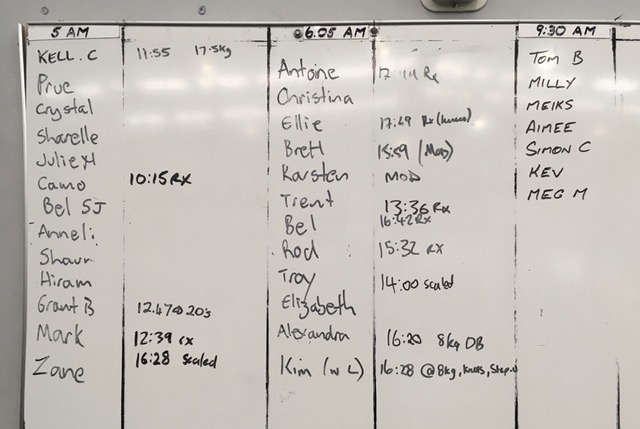 5 AM
KELL. C 11:55 17.5kg
Prue
Crystal
Sharelle
Julie H
Camo 10:15 RX
Bel SJ
Anneli
Shaun
Hiram
Grant B 12.47@ 20's
Mark 12:39 rx
Zane 16:28 scaled
6.05 AM
Antoine Rx
Christina
Ellie 17:49 Rx (knees)
Brett 15:59 (Mod)
Karsten MOD
Trent 13:36 Rx
Bel 16:42 Rx
Rod 15:32 RX
Troy 14:00 scaled
Elizabeth
Alexandra 16:20 8kg DB
Kim (w L) 16:28 @8kg, knees, Step-u
9:30 AM
TOM B
MILLY
MEIKS
AIMEE
SIMON C
KEV
MEG M